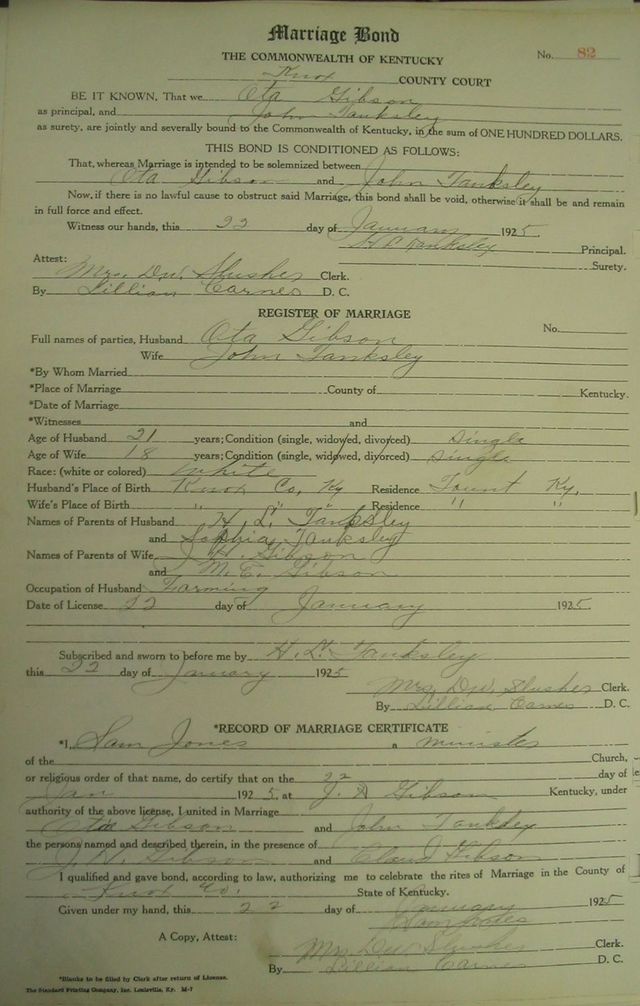 Marriage Bond
THE COMMONWEALTH OF KENTUCKY No. 82
Knox COUNTY COURT
BE IT KNOWN, That we Ota Gibson
as principal, and John Tanksley
as surety, are jointly and severally bound to the Commonwealth of Kentucky, in the sum of ONE HUNDRED DOLLARS.
THIS BOND IS CONDITIONED AS FOLLOWS:
That, whereas Marriage is intended to be solemnized between
Ota Gibson and John Tanksley
Now, if there is no lawful cause to obstruct said Marriage, this bond shall be void, otherwise it shall be and remain
in full force and effect.
Witness our hands, this 22 day of January 1925.
H L Tanksley Principal.
Surety.
Attest:
Mrs. D.W. Slusher Clerk.
By Lillian Carnes D. C.
REGISTER OF MARRIAGE
No.
Full names of parties, Husband Ota Gibson
Wife John Tanksley
*By Whom Married
*Place of Marriage County of Kentucky.
*Date of Marriage
*Witnesses and
Age of Husband 21 years; Condition (single, widowed, divorced) single
Age of Wife 18 years; Condition (single, widowed, divorced) single
Race: (white or colored) White
Husband's Place of Birth Knox Co, Ky Residence Ky.
Wife's Place of Birth " " " Residence " "
Names of Parents of Husband H. L. Tanksley
and Sophia Tanksley
Names of Parents of Wife J. H. Gibson
and M. E. Gibson
Occupation of Husband Farming
Date of License 22 day of January 1925.
Subscribed and sworn to before me by H. L. Tanksley
this 22 day of January 1925
Mrs. D.W. Slusher Clerk.
By Lillian Carnes D. C.
*RECORD OF MARRIAGE CERTIFICATE
*I, Sam Jones a minister
of the Church,
or religious order of that name, do certify that on the 22 day of
Jan 1925, at J. H Gibson Kentucky, under
authority of the above license, I united in Marriage
Ota Gibson and John Tanksley
the persons named and described therein, in the presence of
J. H. Gibson and Claud Gibson
I qualified and gave bond, according to law, authorizing me to celebrate the rites of Marriage in the County of
Knox Co. State of Kentucky.
Given under my hand, this 22 day of January 1925
Sam Jones
A Copy, Attest:
Mrs D.W. Slusher Clerk.
By Lillian Carnes D. C.
*Blanks to be filled by Clerk after return of License.
The Standard Printing Company, Inc. Louisville, Ky. M-7